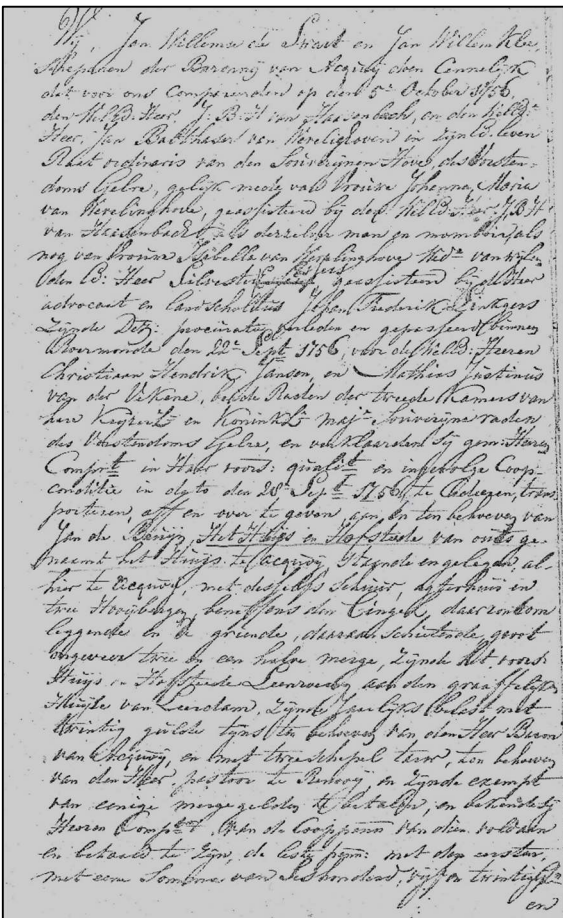 Wij, Jan Willemse de Swart en Jan Willem Klee,
Schepenen der Baronnij van Acquoij doen Cennelijk
dat voor ons Compareerden op den 5e October 1756,
den Wld: Heer, J: B: H van Hassenbach, en den Wld:
Heer, Jan Balthasar van Wevelighoven in zijn Ed: leven
Raet ordinaris van den Souverijnen Hove, des Vorsten-
doms Gelre, gelijk mede van Vrouwe Johanna, Maria
van Wevelinghove, geassisteerd bij den Wld: Heer J B H
van Hassenbach als derzelver man en momboir, als
nog van Vrouwe Isabelle van Wevelinghove Wede van wijlen
den Ed: Heer Silvester geassisteerd bij d'Heer
advocaet en landscholtus Johan Frederik
zijnde Deze: procuratie verleden en gepasseerd binnen
Roermonde den 22e Sept 1756, voor de Wld: Heeren
Christiaan Hendrik Jansen, en Mathias Justinus
van der Vekene, beijde Raden der treede Kamers van
hare Keijzerl en Koninkl majt Souverijne raden
des Vorstendoms Gelre, en verklaarden Sij gem: Heeren
Compt in Haer voors: qualit en ingevolge Coop-
conditie in dato den 28e Sept 1756, te trans-
porteren, aff en over te geven, aan, en ten behoeven van
Jan de Bruijn, Het Huijs en Hofstede van outs ge-
naemt het Huijs te Acquoij, Staande en gelegen, al-
hier te Acquoij, met desselfs Schuur, agterhuis en
tree Hooijbergen, beneffens den Cingel, daar rondom
leggende en de griende, daaraan Schietende, groot
ongeveer tree en een halve merge, zijnde het voors:
Huijs en Hoffstede Leenroerig aan den graaffelijke
Huijse van Leerdam, zijnde jaarlijks belast met
twintig guldens tijns ten behoeven van den Heer Baron
van Acquoij, en met tree schepel tarw, ten behoeven
van den Heer pastoor te Renoij, en zijnde exempt
van eenige mergegelden te betalen, en bekende Sij
Heeren Compten van de Cooppenn van dien voldaan
en betaald te zijn, de leste penn: met den eersten,
met eene Somme van Seshonderd, vijf en twintig
en